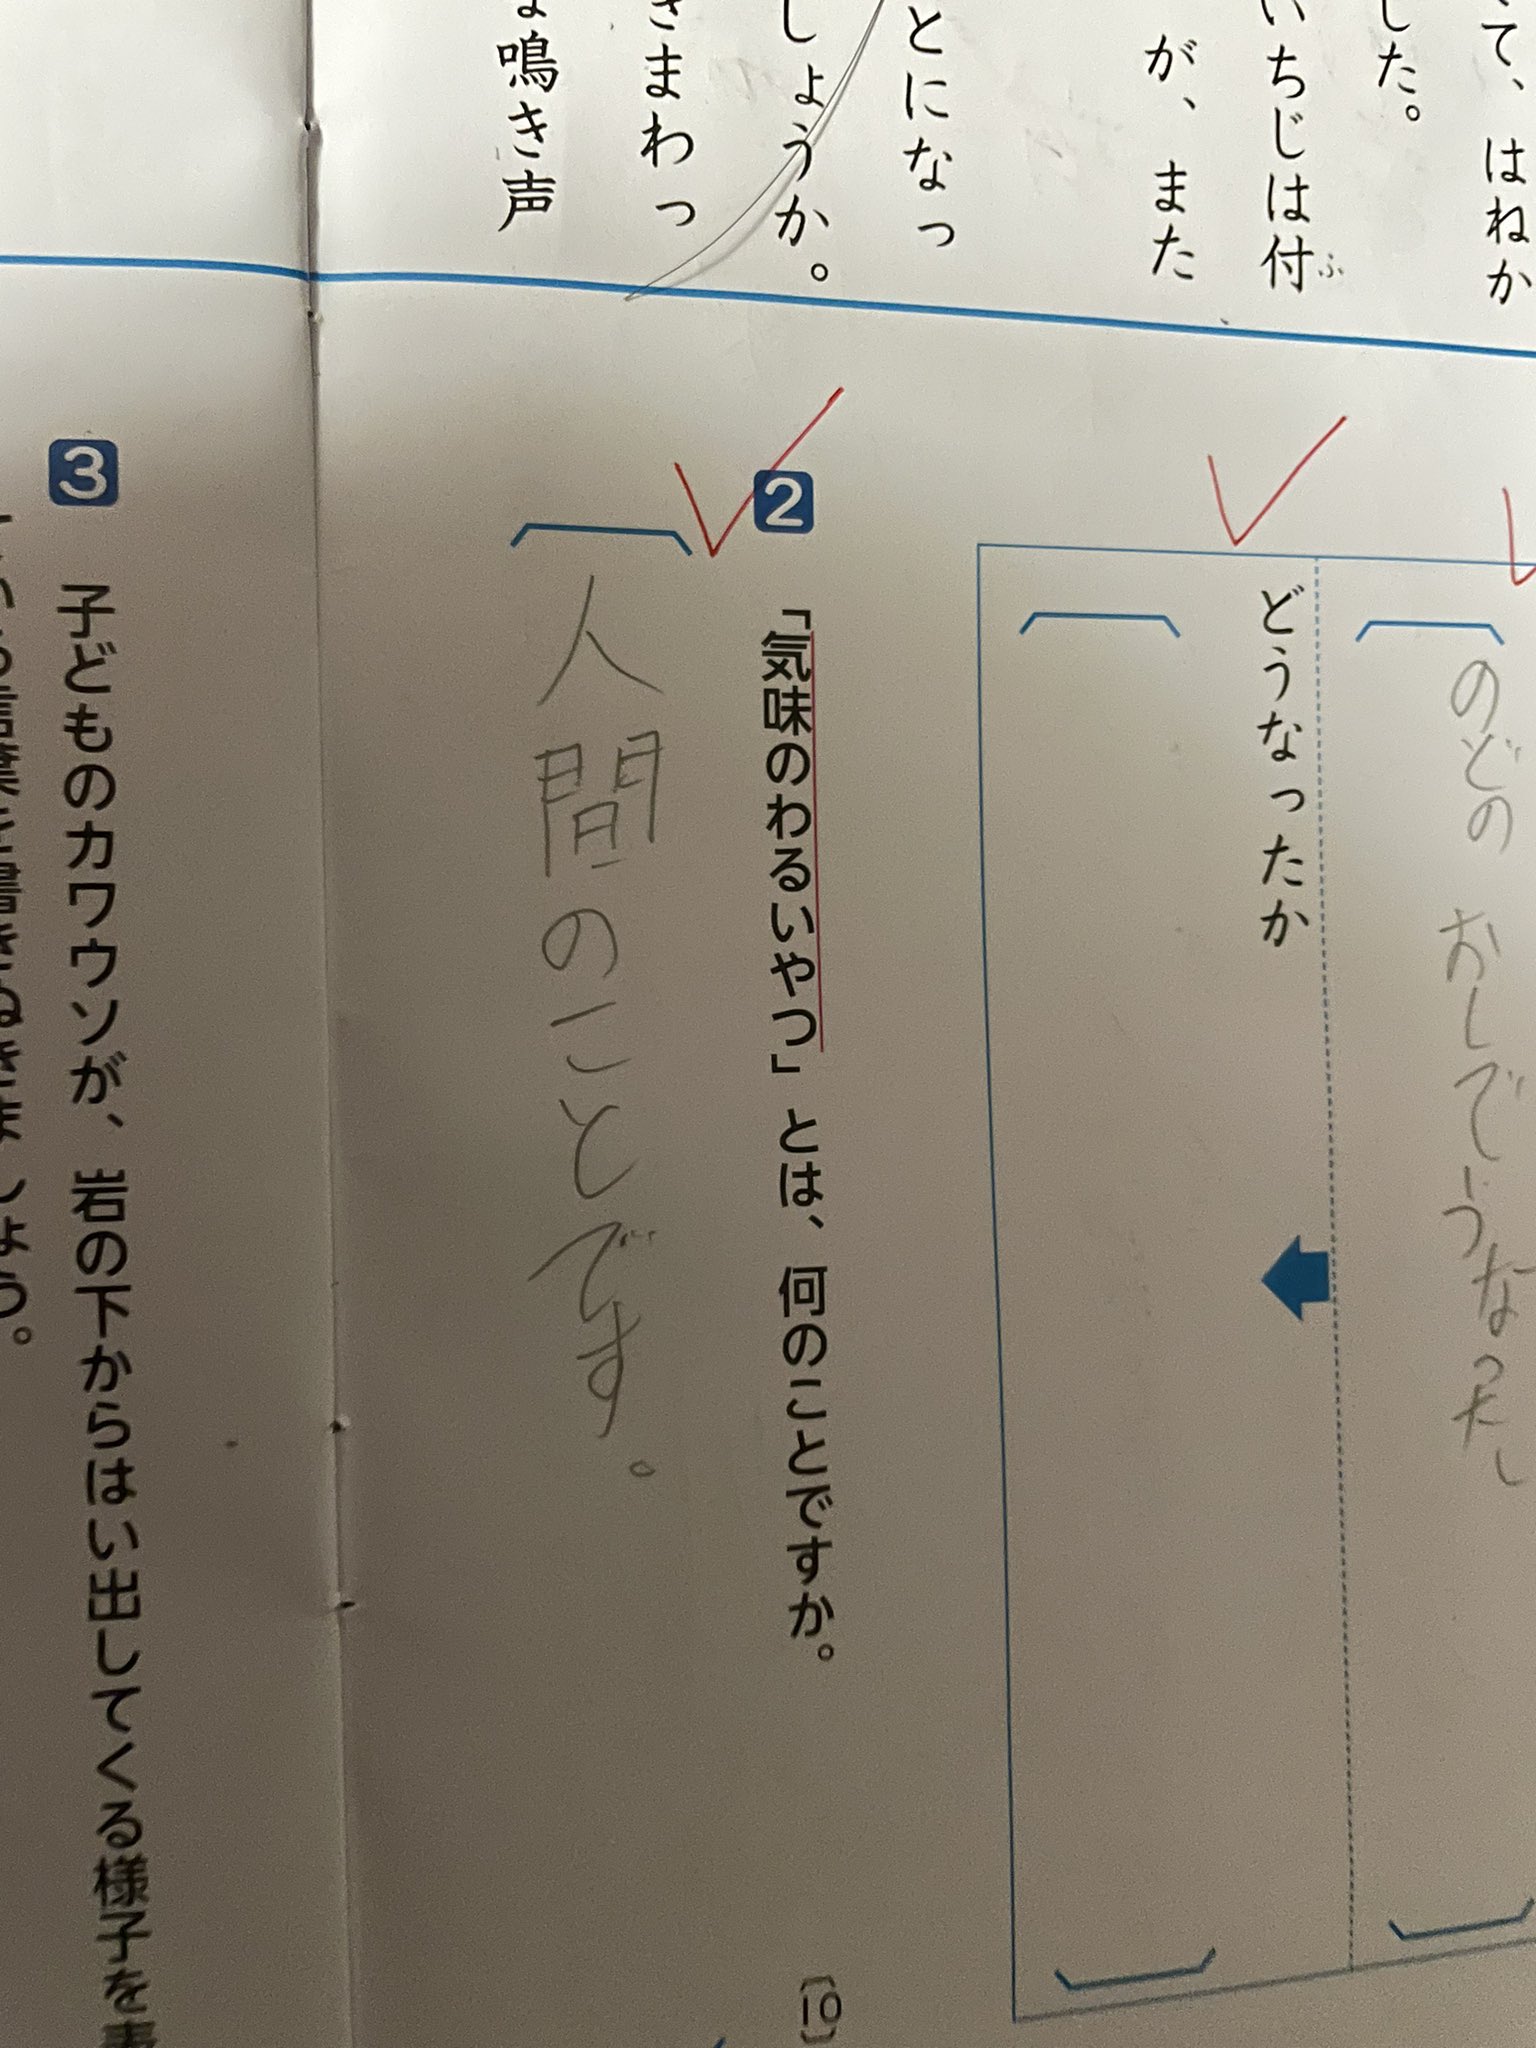 て、はねか
した。
いちじは付
ふ
が、また
とになっ
しょうか。
きまわっ
鳴き声
のどの おしでうなった
どうなったか
2 「気味のわるいやつ」とは、何のことですか。
〔10〕
人間のことです。
3 子どものカワウソが、岩の下からはい出してくる様子を表
ている言葉を書きぬきましょう。